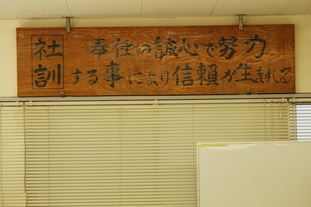 社訓
奉仕の誠心で努力
する事により信頼が生まれる